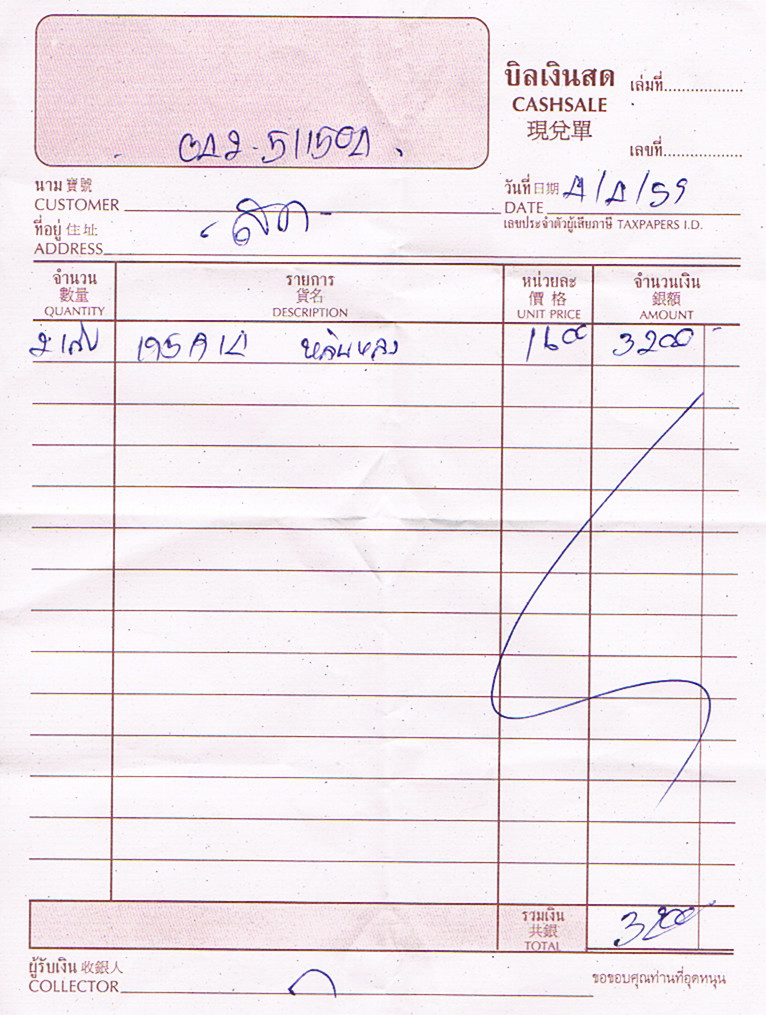 บิลเงินสด เล่มที่
CASHSALE
現兌單
เลขที่
นาม 寶號
CUSTOMER
วันที่ 日期 4/4/59
DATE
ที่อยู่ 住址 สด
ADDRESS
เลขประจำตัวผู้เสียภาษี TAXPAPERS I.D.
จำนวน รายการ หน่วยละ จำนวนเงิน
數量 貨名 價格 銀額
QUANTITY DESCRIPTION UNIT PRICE AMOUNT
2 เส้น 195 R 14 1600 3200 -
รวมเงิน
共銀
TOTAL 3200
ผู้รับเงิน 收銀人
COLLECTOR
ขอขอบคุณท่านที่อุดหนุน